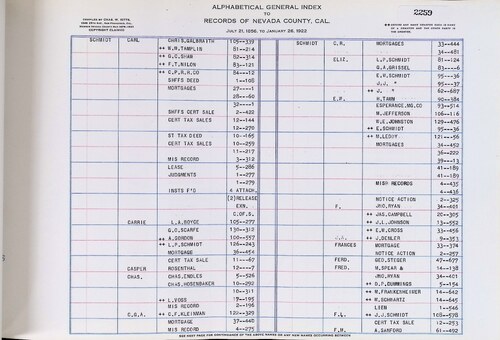 ALPHABETICAL GENERAL INDEX
TO
RECORDS OF NEVADA COUNTY, CAL.
JULY 21, 1856, TO JANUARY 26, 1922
2259
COMPILED BY CHAS. R. PITTS
COPYRIGHT CLAIMED
SCHMIDT CARL CHRIS, GALBRAITH 105--337
++ W.R. TAMPLIN 81--214
++ G.C. SHAW 82--314
++ F.T. NILON 83--121
++ C.P.R.R. CO 84--12
SHFFS DEED 1--168
MORTGAGES 27----1
28---60
32----1
SHFFS CERT SALE 2--422
CERT TAX SALES 12--144
12--270
ST TAX DEED 10--165
CERT TAX SALES 10--259
11--217
MIS RECORD 3--312
LEASE 5--286
JUDGMENTS 1--277
1--279
INSTS F'D 4 ATTACH.
(2)RELEASE
EXN.
C.OF S.
CARRIE L.A. BOYCE 105--277
G.D. SCARFE 130--312
++ A. GORDON 100--557
++ L.P. SCHMIDT 126--243
MORTGAGE 36--454
CERT TAX SALE 11--67
CASPER ROSENTHAL 12----7
CHAS. CHAS, ENDLES 5--526
CHAS, HOSENBAKER 10--292
10--311
++ L. VOSS 19--195
MIS RECORD 2--196
C.G.A. ++ C.F. KLEINMAN 122--329
MORTGAGE 37--440
MIS RECORD 4--275
SCHMIDT C.R. MORTGAGES 33--444
34--481
ELIZ. L.P. SCHMIDT 81--124
G.A. GRISSEL 83----6
E.H. SCHMIDT 95---36
J.J. " 95---37
++ J. " 62--687
E.H. H. TAMM 90--384
ESPERANCE, MG.CO 93--514
W. JEFFERSON 106--116
W.E. JOHNSTON 129--476
++ E. SCHMIDT 95---36
++ M. LEDDY 121--556
MORTGAGES 34--452
36--222
39---13
41--189
41--189
MISR RECORDS 4--435
4--436
NOTICE ACTION 2--325
F. JNO, RYAN 34--401
++ JAS, CAMPBELL 28--305
++ J.L. JOHNSON 13--552
++ E.W. CROSS 33--456
++ J. DENLER 9--353
FRANCES MORTGAGE 33--374
NOTICE ACTION 2--257
FERD. GEO, STEGER 47--677
FRED. M. SPEAR & 14--138
JNO, RYAN 34--401
++ D.P. DUMMINGS 5--154
++ M. FRANKENHEIMER 14--642
++ W. SCHWARTZ 14--645
LIEN 1--546
F.L. ++ J.J. SCHMIDT 108--578
CERT TAX SALE 12--253
F.M. A. SANFORD 61--492
SEE NEXT PAGE FOR CONTINUANCE OF THE ABOVE NAMES OR ANY NEW NAMES OCCURRING BETWEEN